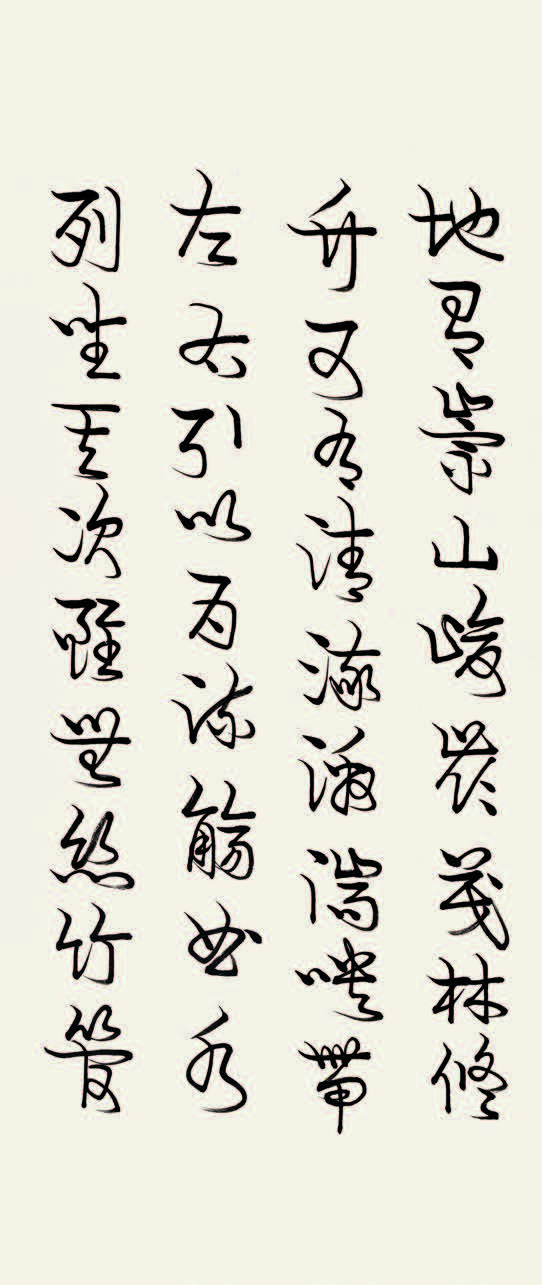 地有崇山峻嶺茂林脩
竹又有清流激湍暎帶
左右引以為流觴曲水
列坐其次雖無絲竹管